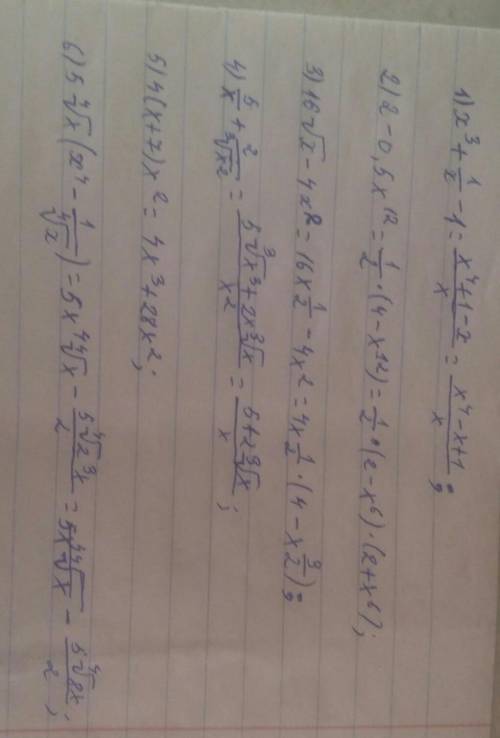 1) x³ + 1/x - 1 = (x⁴+1-x)/x = (x⁴-x+1)/x;
2) 2 - 0,5x¹² = 1/2 · (4-x¹²) = 1/2 · (2-x⁶) · (2+x⁶);
3) 16√x - 4x² = 16x^(1/2) - 4x² = 4x^(1/2) · (4 - x^(3/2));
4) 5/x + 2/∛x² = (5∛x³ + 2x∛x)/x² = (5+2∛x)/x;
5) 4(x+7)x² = 4x³+28x²;
6) 5∜x (x⁴ - 1/∜x) = 5x⁴∜x - 5∜2³x/2 = 5x⁴∜x - 5∜8x/2;